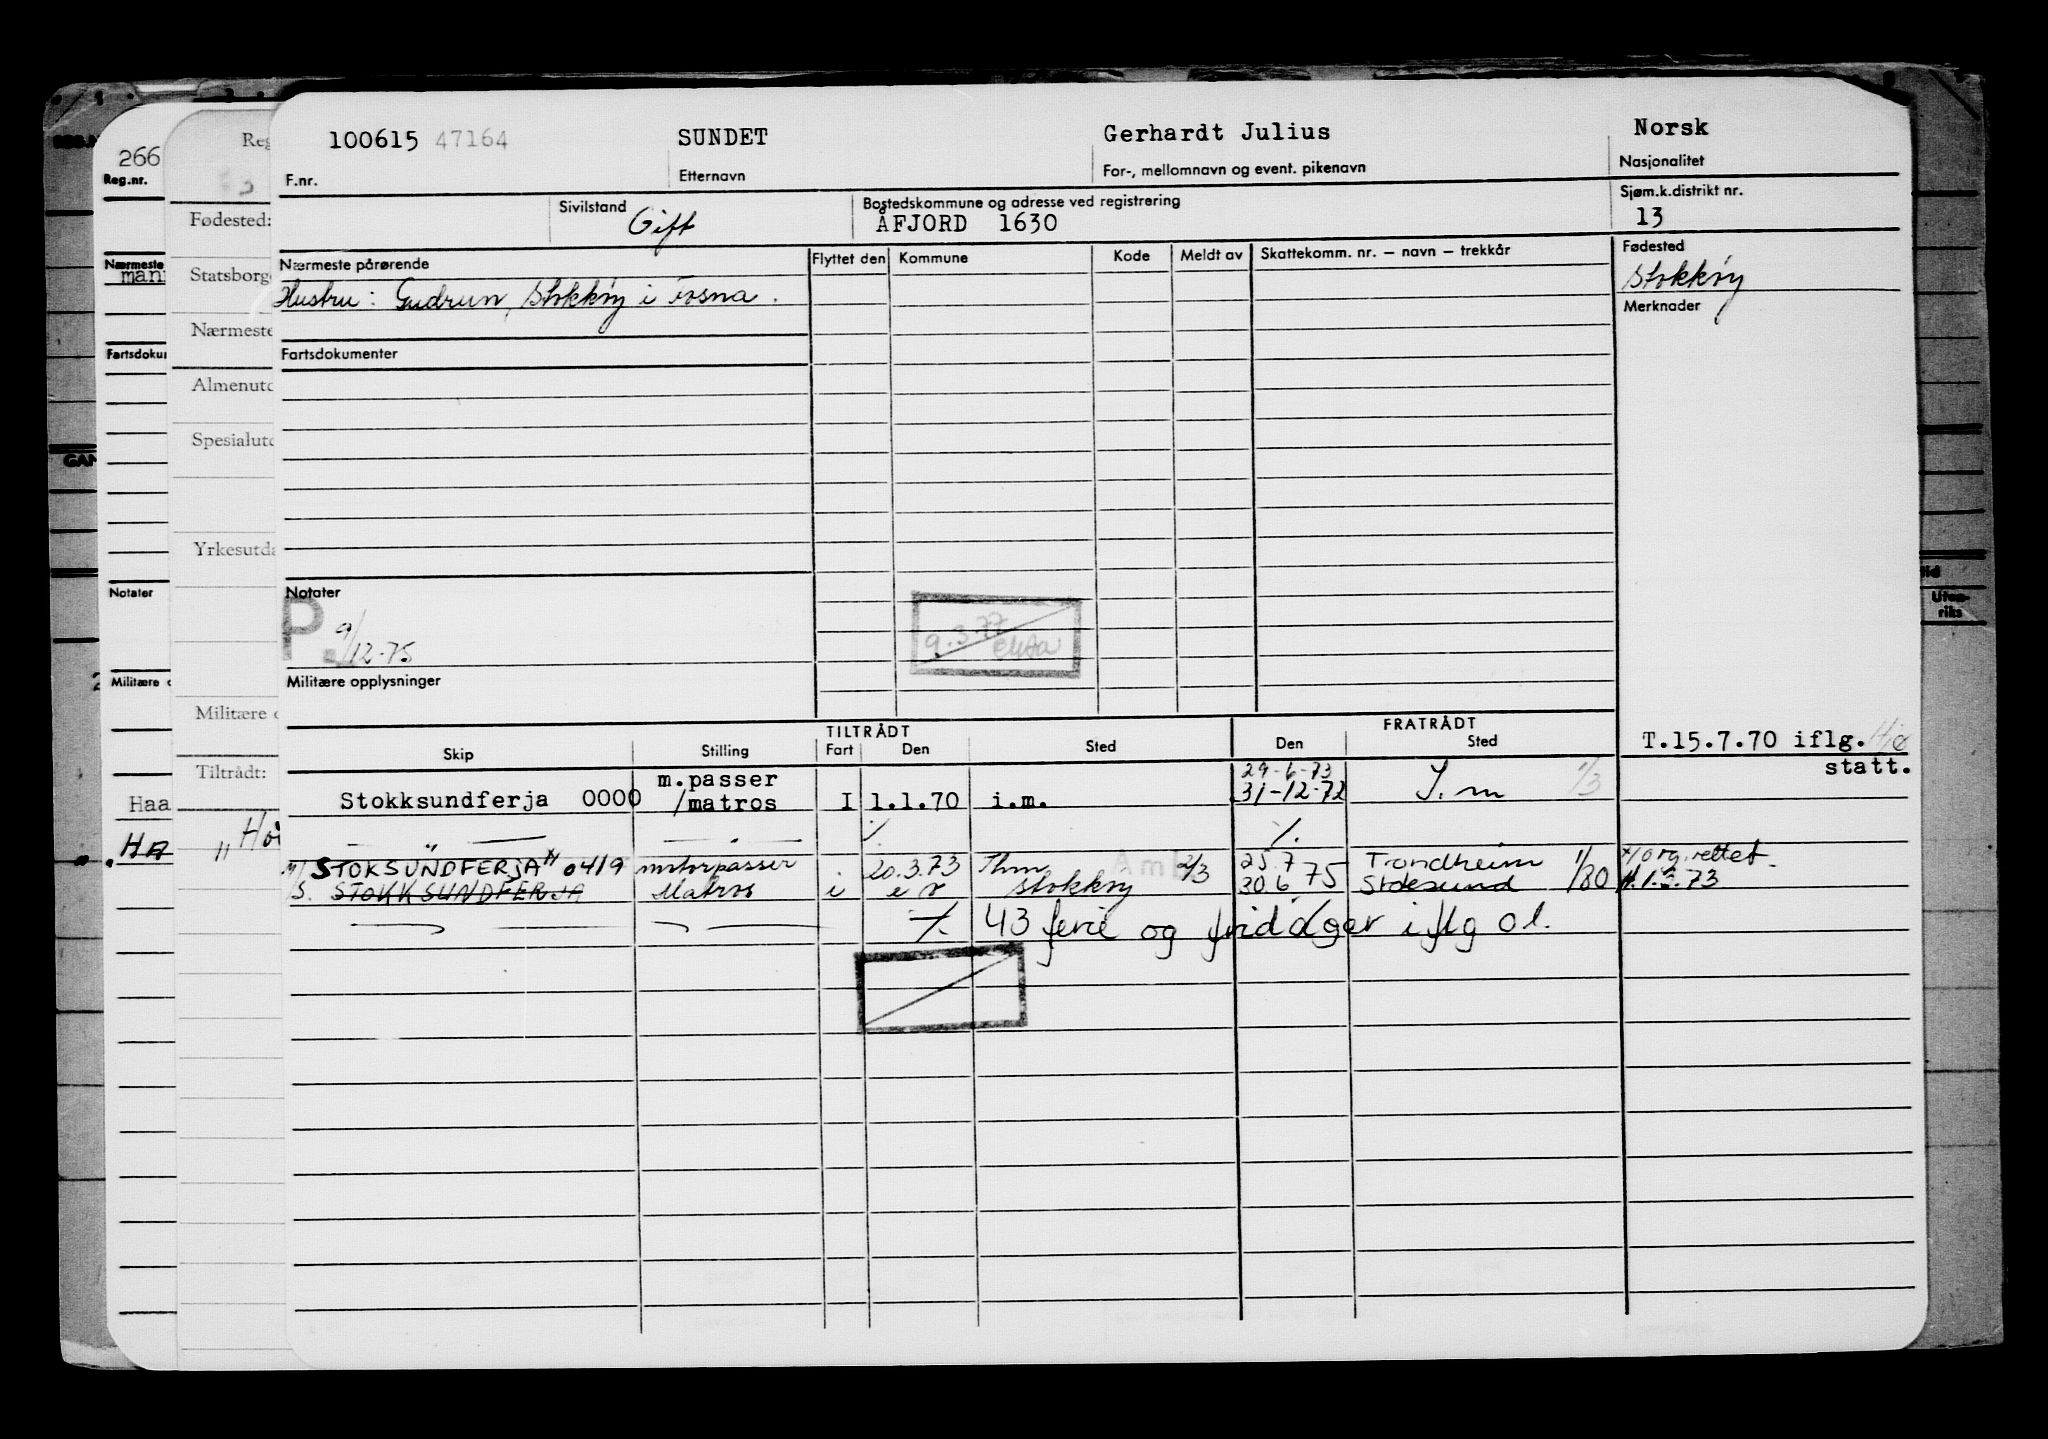 100615 47164 SUNDET Gerhardt Julius Norsk
F.nr. Etternavn For-, mellomnavn og event. pikenavn Nasjonalitet
Sivilstand Gift Bostedskommune og adresse ved registrering Sjøm.k.distrikt nr.
ÅFJORD 1630 13
Nærmeste pårørende Flyttet den Kommune Kode Meldt av Skattekomm. nr. – navn – trekkår Fødested
Hustru: Gudrun, Stokkøy i Fosna. Stokkøy
Merknader
Fartsdokumenter
Notater
P. 9/12-75 9.3.77
Militære opplysninger
TILTRÅDT FRATRÅDT
Skip Stilling Fart Den Sted Den Sted T.15.7.70 iflg.
statt.
m.passer 29-6-73
Stokksundferja 0000 /matros I 1.1.70 i.m. 31-12-72 I.m 1/3
— " — — " — ./. ./.
M/ STOKSUNDFERJA x) 0419 motorpasser 20.3.73 Thm 2/3 25.7 Trondheim 1/80 x) org. rettet
S. STOKKSUNDFERJA Matros i Stokkøy 30.6 75 Stoksund 1.3.73
./. 43 ferie og fridager iflg ol.
266
Reg.nr.
Nærmeste
mann
Fartsdokum
Notater
Militære o
Haa
HA
Reg
Fødested:
Statsborge
Nærmeste
Almenutd
Spesialutd
Yrkesutda
Militære o
Tiltrådt:
GAN
Uten-
riks